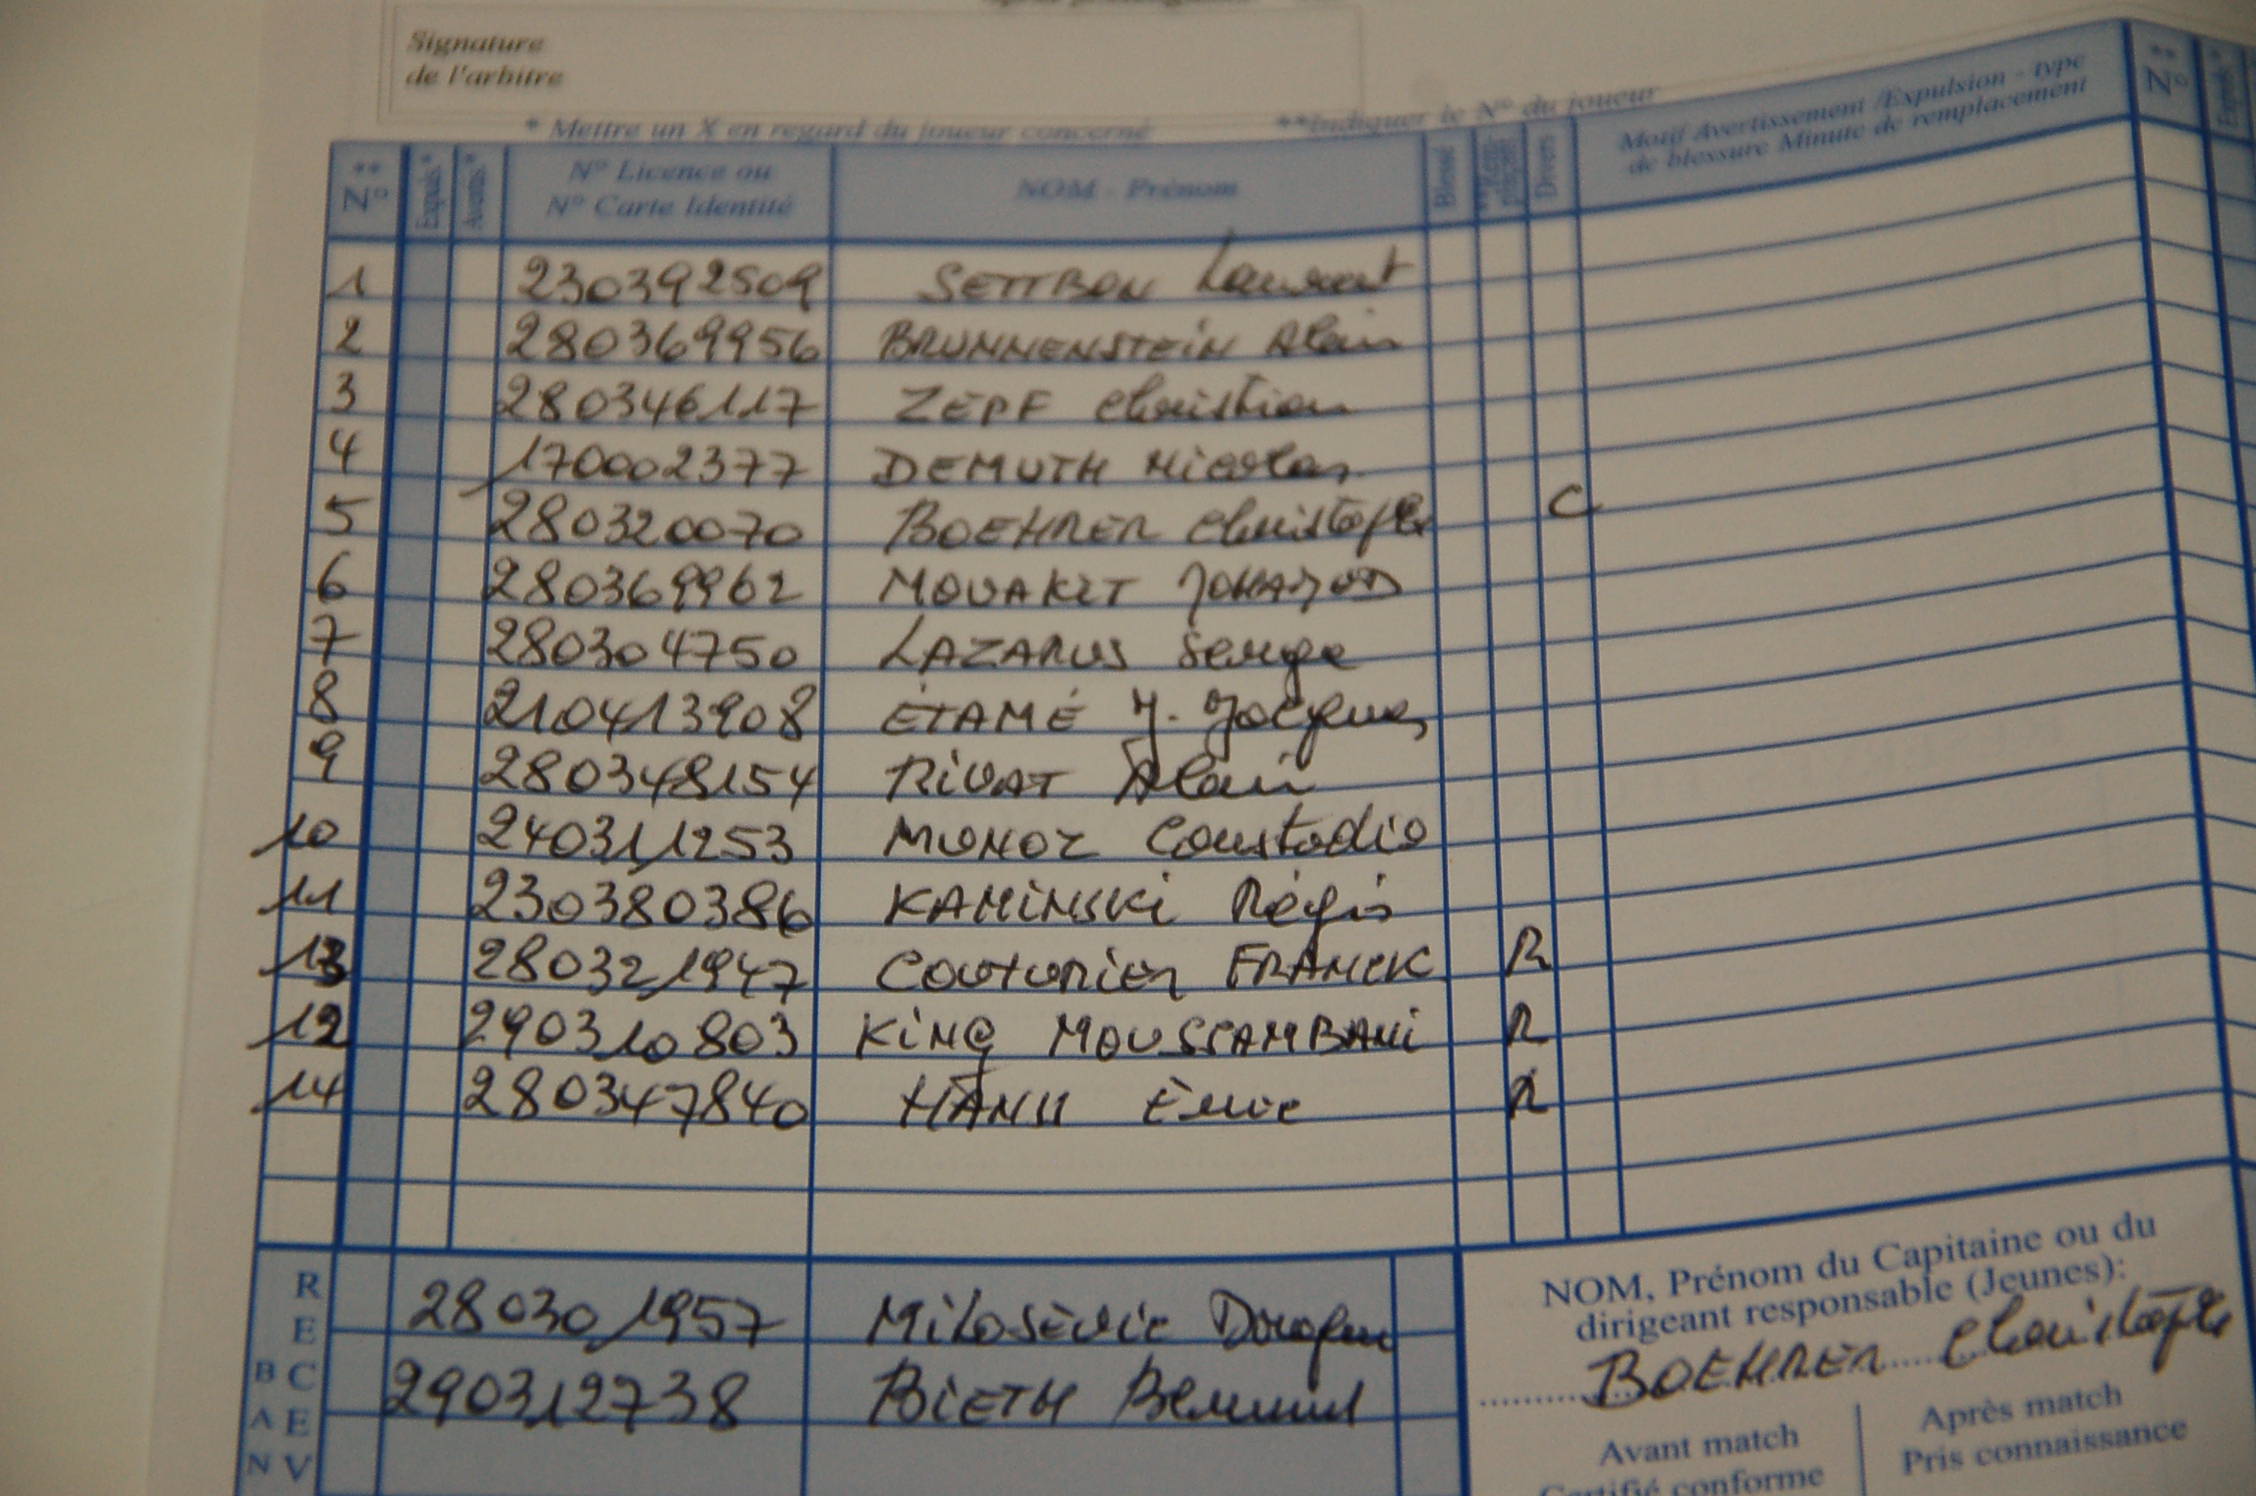 Signature
de l'arbitre
* Mettre un X en regard du joueur concerné **Indiquer le N° du joueur
** N° Expuls.* Avertis.* N° Licence ou N° Carte Identité NOM - Prénom Blessé Divers Motif Avertissement /Expulsion - type de blessure Minute de remplacement ** N°
1 230392509 SETTBON Laurent
2 280369956 BRUNNENSTEIN Alain
3 280346117 ZEPF Christian
4 170002377 DEMUTH Nicolas
5 280320070 BOEHRER Christophe C
6 280369962 MOUAKIT
7 280304750 LAZARUS Serge
8 210413908 ÉTAMÉ J. Jacques
9 280348154 RIVAT Alain
10 240311253 MUNOZ Coustodio
11 230380386 KAMINSKI Régis
13 280321947 COUTURIER FRANCK R
12 290310803 KING MOUSSAMBANI R
14 280347840 R
BAN RECEV
280301957 MILOSEVIC Dragan
290312738 BIETH Bernard
NOM, Prénom du Capitaine ou du
dirigeant responsable (Jeunes):
BOEHRER Christophe
Avant match Après match
Certifié conforme Pris connaissance